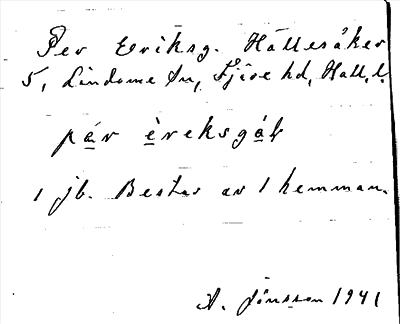 Per Eriksg. Hällesåker
5, Lindome sn, Fjäre hd, Hall. l.
pär èreksgåḷ
1 jb. Består av 1 hemman.
A. Jönsson 1941